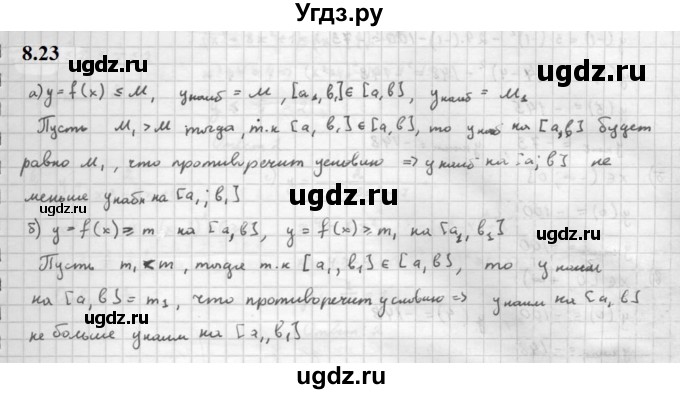 Угдз.ру
8.23
ugdz.ru ugdz.ru
а) y = f(x) ≤ M, yнаиб = M, [a₁, b₁] ∈ [a, b], yнаиб = M₁
Пусть M₁ > M тогда, т.к [a, b₁] ∈ [a, b], то yнаиб на [a, b] будет
ugdz.ru
равно M₁, что противоречит условию ⇒ yнаиб на [a; b] не
ugdz.ru
меньше yнаиб на [a₁; b₁]
ugdz.ru ugdz.ru
б) y = f(x) ≥ m на [a, b], y = f(x) ≥ m₁ на [a₁, b₁]
Пусть m₁ < m, тогда т.к [a₁, b₁] ∈ [a, b], то yнаим
ugdz.ru
на [a, b] = m₁, что противоречит условию ⇒ yнаим на [a, b]
ugdz.ru ugdz.ru
не больше yнаим на [a₁, b₁]
ugdz.ru